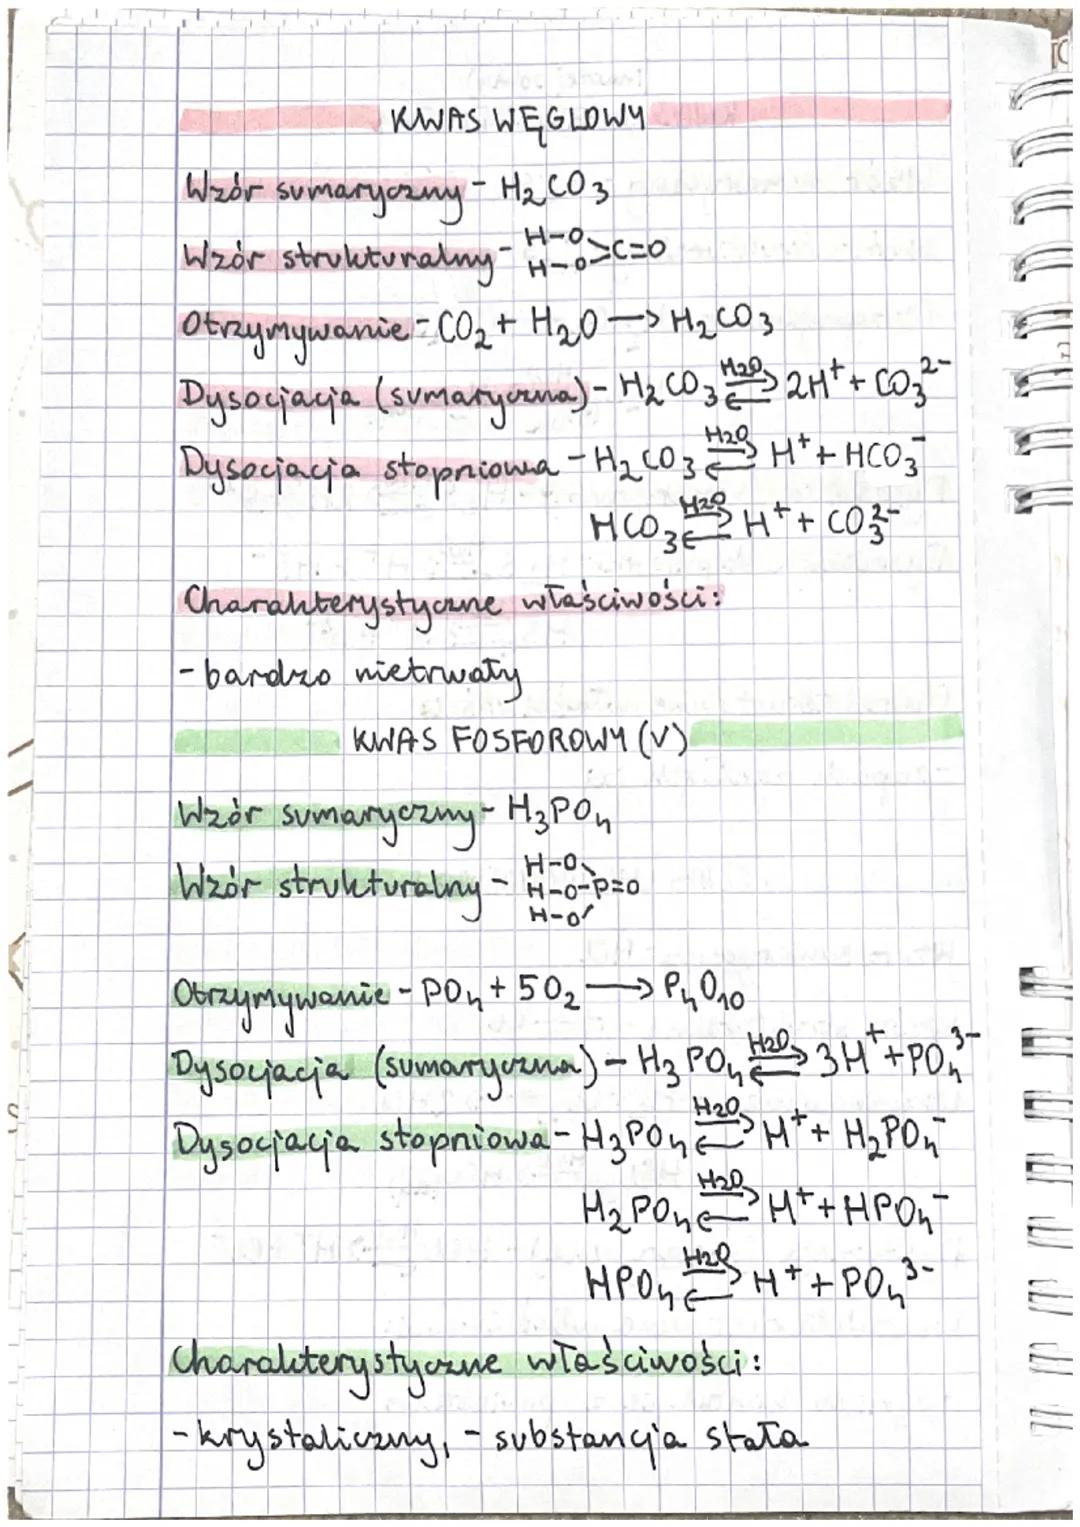 KWAS WĘGLOWY
Wzór sumaryczny - H₂CO₃
Wzór strukturalny - H-O
H-O >C=O
Otrzymywanie - CO₂ + H₂O → H₂CO₃
Dysocjacja (sumaryczna) - H₂CO₃ ⇄ H2O 2H⁺ + CO₃²⁻
Dysocjacja stopniowa - H₂CO₃ ⇄ H2O H⁺ + HCO₃⁻
HCO₃ ⇄ H2O H⁺ + CO₃²⁻
Charakterystyczne właściwości:
- bardzo nietrwały
KWAS FOSFOROWY (V)
Wzór sumaryczny - H₃PO₄
Wzór strukturalny - H-O
H-O-P=O
H-O
Otrzymywanie - PO₄ + 5O₂ → P₄O₁₀
Dysocjacja (sumaryczna) - H₃PO₄ ⇄ H2O 3H⁺ + PO₄³⁻
Dysocjacja stopniowa - H₃PO₄ ⇄ H2O H⁺ + H₂PO₄⁻
H₂PO₄ ⇄ H2O H⁺ + HPO₄⁻
HPO₄ ⇄ H2O H⁺ + PO₄³⁻
Charakterystyczne właściwości:
- krystaliczny, - substancja stała